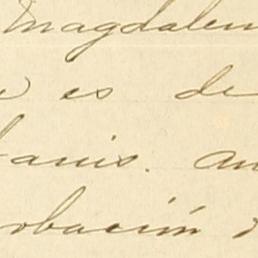 Magdalen
es de
anis. An
obación d